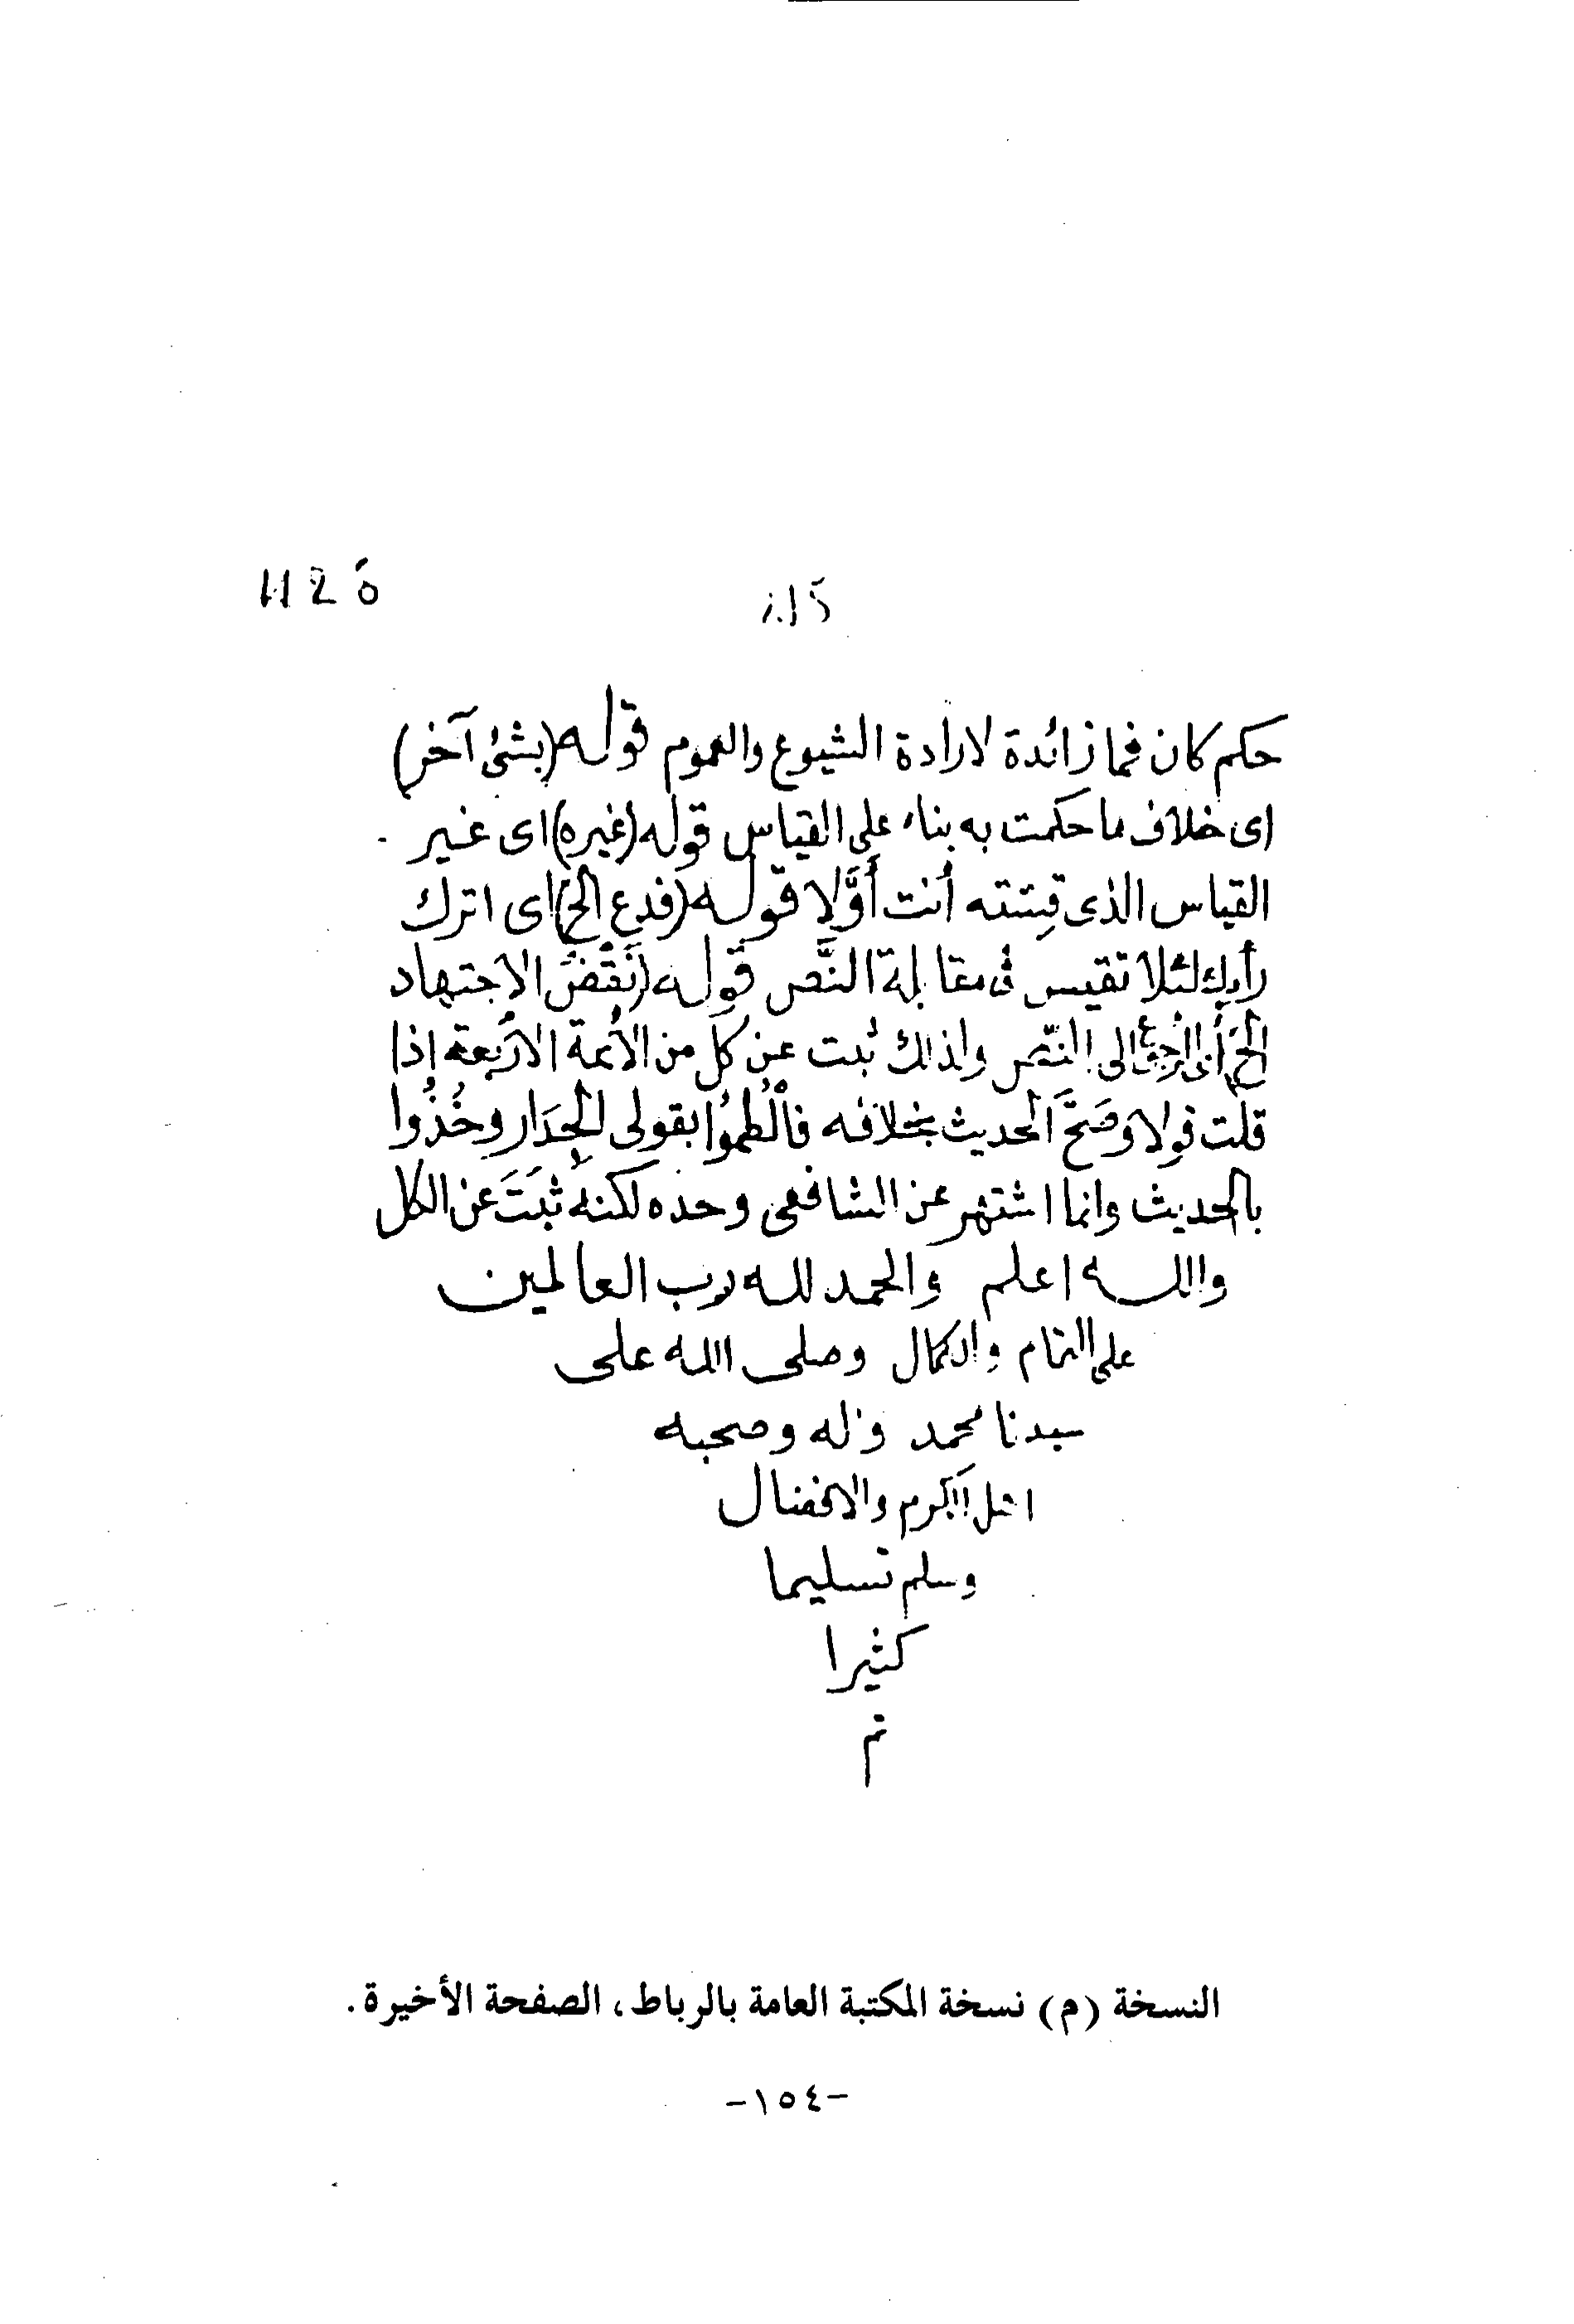 حكم كان فما زائدة لارادة الشيوع والعموم قوله (بشئ آخر)
اى خلاف ما حكمت به بناء على القياس قوله (غيره) اى غير
القياس الذى قستته أنت أوَّلا قوله (فدع الخ) اى اترك
رأيك لئلا تقيس فى مقابلة النَّص قوله (نَقْضُ الاجتهاد
الخ) أى الى النّص ولذلك ثبت عن كل من الأئمة الأربعة إذا
قلت قولا وصَحَّ الحديث بخلافه فالْطمُوُا بقولى الجِدَار وخُذُوا
بالحديث وانما اشتهر عن الشافعى وحده لكنه ثَبَتَ عن الكل
والله اعلم والحمد لله رب العالمين
على التمام والكمال وصلى الله على
سيدنا محمد وآله وصحبه
الكرم والافضال
وسلم تسليما
كثيرا
تم
النسخة (م) نسخة المكتبة العامة بالرباط، الصفحة الأخيرة.
-١٥٤-